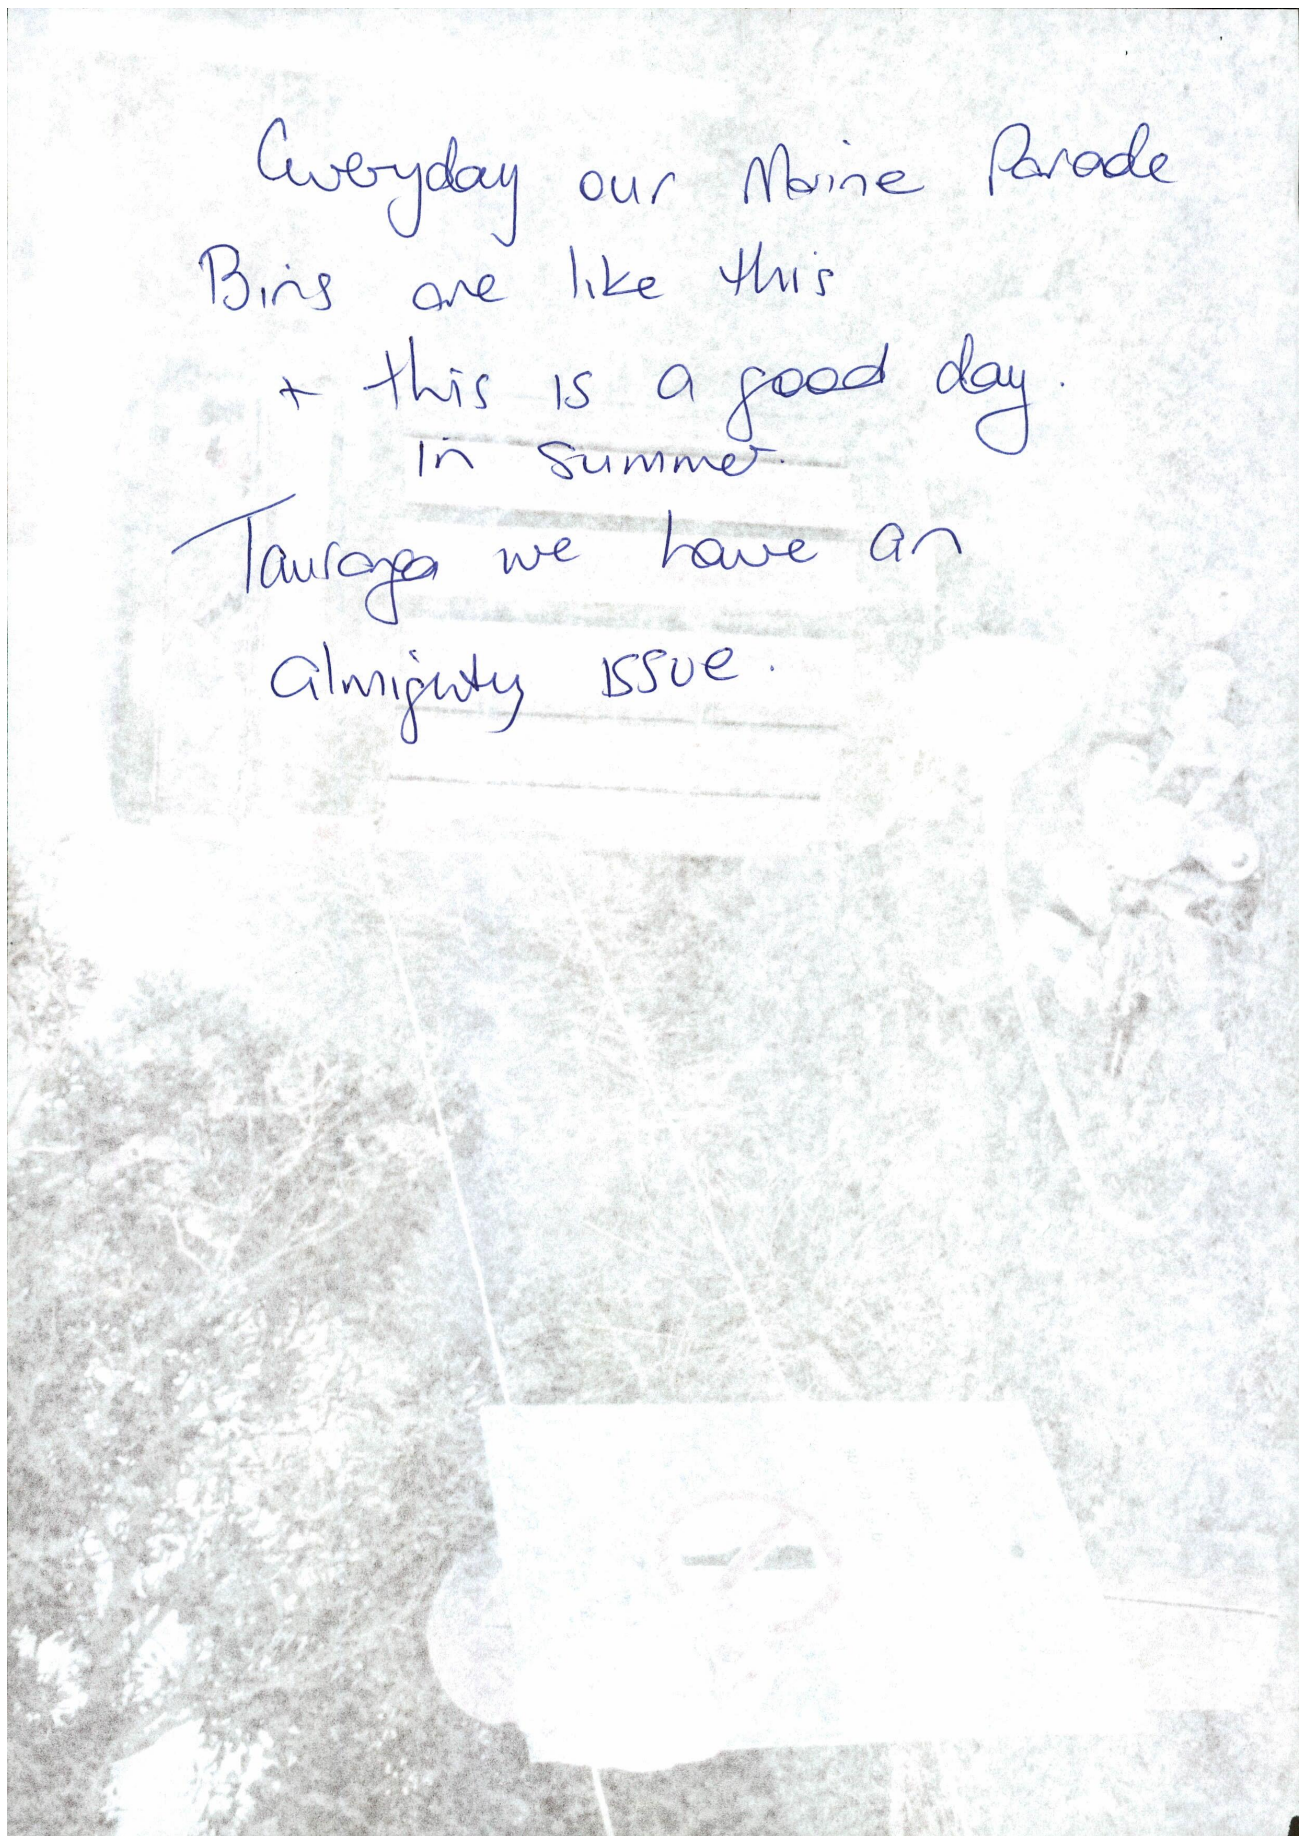 Everyday our Marine Parade
Bins are like this
+ this is a good day.
in summer.
Tauranga we have an
almighty issue.